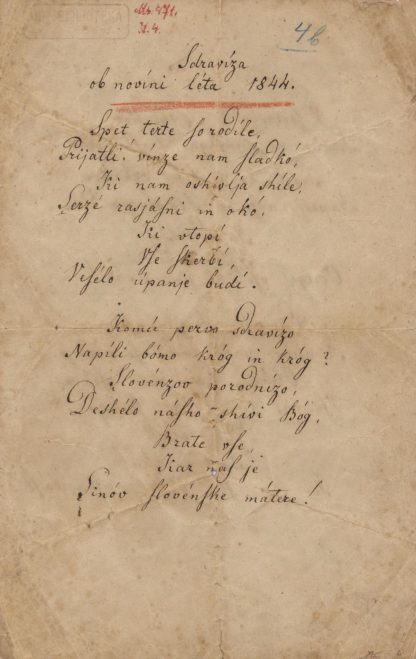 Ms. 471.
N. 4.
4b
Sdravíza
ob novíni léta 1844.
Spet terte so rodíle,
Prijatli! vínze nam sladkó,
Ki nam oshívlja shíle,
Serzé rasjásni in okó,
Ki vtopí
Vse skerbí,
Vesélo úpanje budí.
Komú pervo sdravízo
Napíli bómo króg in króg?
Slovénzov porodnízo,
Deshélo násho shívi Bóg,
Brate vse,
Kar nas je
Sinóv slovénske mátere!